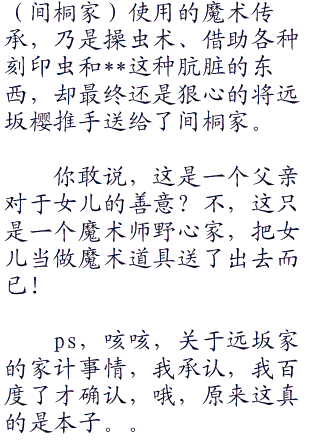 （间桐家）使用的魔术传
承，乃是操虫术、借助各种
刻印虫和**这种肮脏的东
西，却最终还是狠心的将远
坂樱推手送给了间桐家。
你敢说，这是一个父亲
对于女儿的善意？不，这只
是一个魔术师野心家，把女
儿当做魔术道具送了出去而
已！
ps，咳咳，关于远坂家
的家计事情，我承认，我百
度了才确认，哦，原来这真
的是本子。。